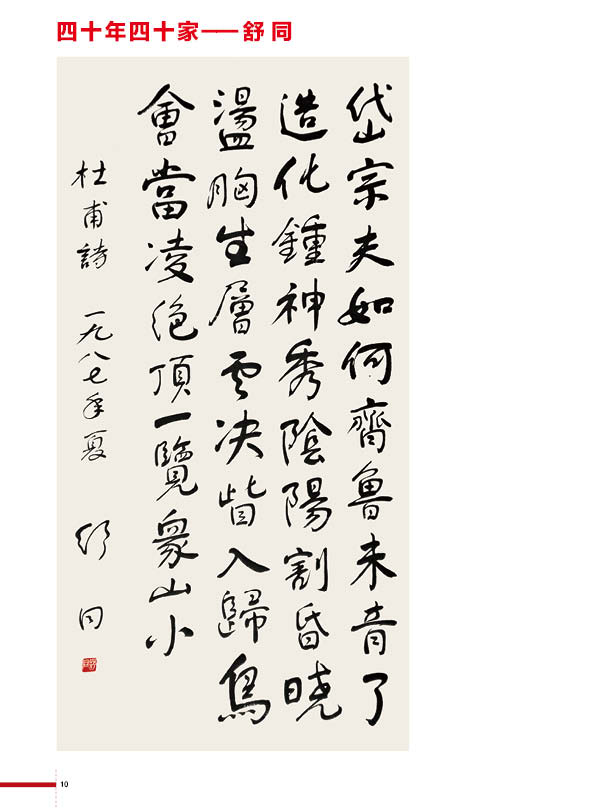 四十年四十家——舒 同
岱宗夫如何齊魯未青了
造化鍾神秀陰陽割昏曉
盪胸生層雲決眥入歸鳥
會當凌絕頂一覽衆山小
杜甫詩 一九八七年夏 舒同
10